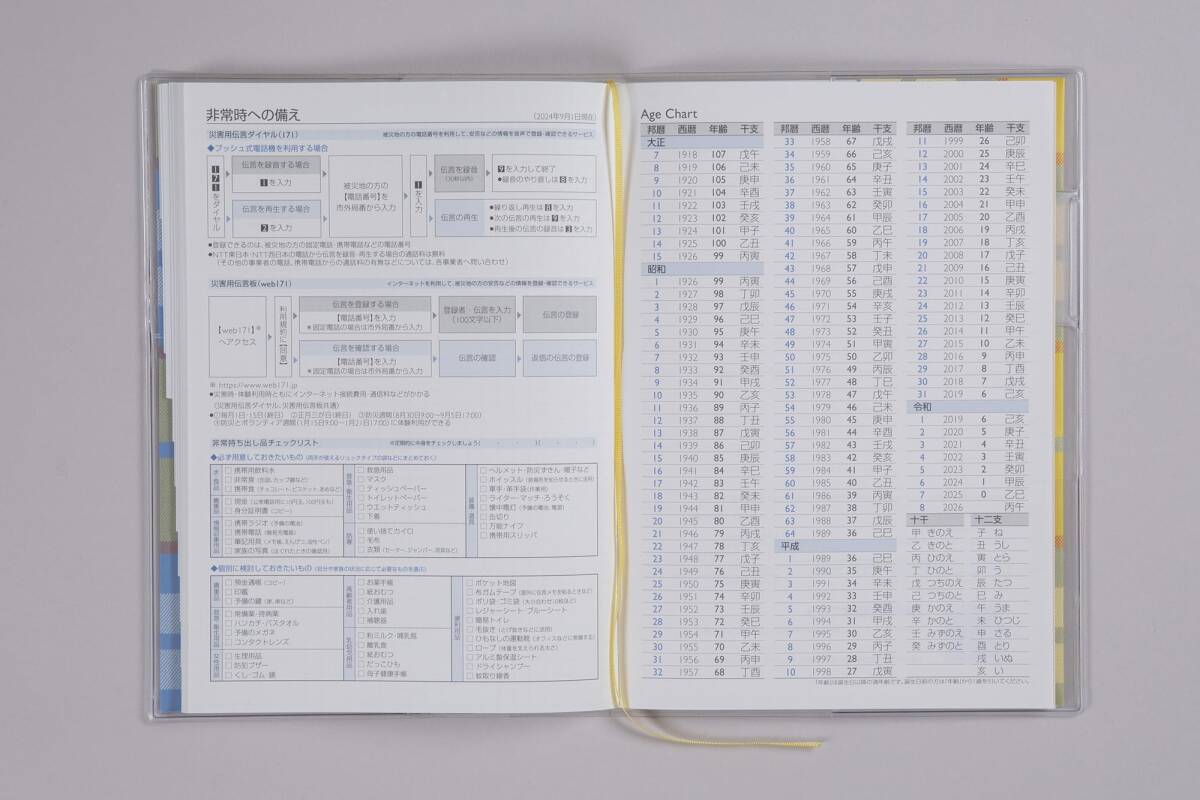 非常時への備え
(2024年9月1日現在)
災害用伝言ダイヤル(171)
被災地の方の電話番号を利用して、安否などの情報を音声で登録・確認できるサービス
◆プッシュ式電話機を利用する場合
171をダイヤル
伝言を録音する場合
1を入力
伝言を再生する場合
2を入力
被災地の方の
【電話番号】を
市外局番から入力
1を入力
伝言を録音
(30秒以内)
9を入力して終了
●録音のやり直しは8を入力
伝言の再生
●繰り返し再生は8を入力
●次の伝言の再生は9を入力
●再生後の伝言の録音は3を入力
●登録できるのは、被災地の方の固定電話・携帯電話などの電話番号
●NTT東日本・NTT西日本の電話から伝言を録音・再生する場合の通話料は無料
(その他の事業者の電話、携帯電話からの通話料の有無などについては、各事業者へ問い合わせ)
災害用伝言板(web171)
インターネットを利用して、被災地の方の安否などの情報を登録・確認できるサービス
【web171】※
へアクセス
利用規約に【同意】
伝言を登録する場合
【電話番号】を入力
＊固定電話の場合は市外局番から入力
登録者・伝言を入力
(100文字以下)
伝言の登録
伝言を確認する場合
【電話番号】を入力
＊固定電話の場合は市外局番から入力
伝言の確認
返信の伝言の登録
※ https://www.web171.jp
●災害時・体験利用時ともにインターネット接続費用・通信料などがかかる
〈災害用伝言ダイヤル、災害用伝言板共通〉
●①毎月1日・15日(終日) ②正月三が日(終日) ③防災週間(8月30日9:00～9月5日17:00)
④防災とボランティア週間(1月15日9:00～1月21日17:00)に体験利用ができる
非常持ち出し品チェックリスト
※定期的に中身をチェックしましょう( ・ ・ )( ・ ・ )
◆必ず用意しておきたいもの (両手が使えるリュックタイプの袋などにまとめておく)
水・食品
□ 携帯用飲料水
□ 非常食 (缶詰、カップ麺など)
□ 携帯食 (チョコレート、ビスケット、あめなど)
貴重品
□ 現金 (公衆電話用に10円玉、100円玉も)
□ 身分証明書 (コピー)
情報収集用品
□ 携帯ラジオ (予備の電池)
□ 携帯電話 (簡易充電器)
□ 筆記用具 (メモ帳、えんぴつ、油性ペン)
□ 家族の写真 (はぐれたときの確認用)
救急・衛生用品
□ 救急用品
□ マスク
□ ティッシュペーパー
□ トイレットペーパー
□ ウエットティッシュ
□ 下着
防寒
□ 使い捨てカイロ
□ 毛布
□ 衣類 (セーター、ジャンパー、雨具など)
装備・道具
□ ヘルメット・防災ずきん・帽子など
□ ホイッスル (居場所を知らせるときに活用)
□ 軍手・革手袋 (作業用)
□ ライター・マッチ・ろうそく
□ 懐中電灯 (予備の電池、電源)
□ 缶切り
□ 万能ナイフ
□ 携帯用スリッパ
◆個別に検討しておきたいもの (自分や家族の状況に応じて必要なものを選択)
貴重品
□ 預金通帳 (コピー)
□ 印鑑
□ 予備の鍵 (家、車など)
救急・衛生用品
□ 常備薬・持病薬
□ ハンカチ・バスタオル
□ 予備のメガネ
□ コンタクトレンズ
女性用品
□ 生理用品
□ 防犯ブザー
□ くし・ゴム・鏡
高齢者用品
□ お薬手帳
□ 紙おむつ
□ 介護用品
□ 入れ歯
□ 補聴器
乳幼児用品
□ 粉ミルク・哺乳瓶
□ 離乳食
□ 紙おむつ
□ だっこひも
□ 母子健康手帳
便利用品
□ ポケット地図
□ 布ガムテープ (屋外に伝言メモを貼るときなど)
□ ポリ袋・ゴミ袋 (大小合わせ10枚ほど)
□ レジャーシート・ブルーシート
□ 簡易トイレ
□ 毛抜き (とげ抜きなどに活用)
□ ひもなしの運動靴 (オフィスなどに常備する)
□ ロープ (体重を支えられる太さ)
□ アルミ製保温シート
□ ドライシャンプー
□ 蚊取り線香
Age Chart
邦暦 西暦 年齢 干支
大正
7 1918 107 戊午
8 1919 106 己未
9 1920 105 庚申
10 1921 104 辛酉
11 1922 103 壬戌
12 1923 102 癸亥
13 1924 101 甲子
14 1925 100 乙丑
15 1926 99 丙寅
昭和
1 1926 99 丙寅
2 1927 98 丁卯
3 1928 97 戊辰
4 1929 96 己巳
5 1930 95 庚午
6 1931 94 辛未
7 1932 93 壬申
8 1933 92 癸酉
9 1934 91 甲戌
10 1935 90 乙亥
11 1936 89 丙子
12 1937 88 丁丑
13 1938 87 戊寅
14 1939 86 己卯
15 1940 85 庚辰
16 1941 84 辛巳
17 1942 83 壬午
18 1943 82 癸未
19 1944 81 甲申
20 1945 80 乙酉
21 1946 79 丙戌
22 1947 78 丁亥
23 1948 77 戊子
24 1949 76 己丑
25 1950 75 庚寅
26 1951 74 辛卯
27 1952 73 壬辰
28 1953 72 癸巳
29 1954 71 甲午
30 1955 70 乙未
31 1956 69 丙申
32 1957 68 丁酉
邦暦 西暦 年齢 干支
33 1958 67 戊戌
34 1959 66 己亥
35 1960 65 庚子
36 1961 64 辛丑
37 1962 63 壬寅
38 1963 62 癸卯
39 1964 61 甲辰
40 1965 60 乙巳
41 1966 59 丙午
42 1967 58 丁未
43 1968 57 戊申
44 1969 56 己酉
45 1970 55 庚戌
46 1971 54 辛亥
47 1972 53 壬子
48 1973 52 癸丑
49 1974 51 甲寅
50 1975 50 乙卯
51 1976 49 丙辰
52 1977 48 丁巳
53 1978 47 戊午
54 1979 46 己未
55 1980 45 庚申
56 1981 44 辛酉
57 1982 43 壬戌
58 1983 42 癸亥
59 1984 41 甲子
60 1985 40 乙丑
61 1986 39 丙寅
62 1987 38 丁卯
63 1988 37 戊辰
64 1989 36 己巳
平成
1 1989 36 己巳
2 1990 35 庚午
3 1991 34 辛未
4 1992 33 壬申
5 1993 32 癸酉
6 1994 31 甲戌
7 1995 30 乙亥
8 1996 29 丙子
9 1997 28 丁丑
10 1998 27 戊寅
邦暦 西暦 年齢 干支
11 1999 26 己卯
12 2000 25 庚辰
13 2001 24 辛巳
14 2002 23 壬午
15 2003 22 癸未
16 2004 21 甲申
17 2005 20 乙酉
18 2006 19 丙戌
19 2007 18 丁亥
20 2008 17 戊子
21 2009 16 己丑
22 2010 15 庚寅
23 2011 14 辛卯
24 2012 13 壬辰
25 2013 12 癸巳
26 2014 11 甲午
27 2015 10 乙未
28 2016 9 丙申
29 2017 8 丁酉
30 2018 7 戊戌
31 2019 6 己亥
令和
1 2019 6 己亥
2 2020 5 庚子
3 2021 4 辛丑
4 2022 3 壬寅
5 2023 2 癸卯
6 2024 1 甲辰
7 2025 0 乙巳
8 2026 丙午
十干 十二支
甲 きのえ 子 ね
乙 きのと 丑 うし
丙 ひのえ 寅 とら
丁 ひのと 卯 う
戊 つちのえ 辰 たつ
己 つちのと 巳 み
庚 かのえ 午 うま
辛 かのと 未 ひつじ
壬 みずのえ 申 さる
癸 みずのと 酉 とり
戌 いぬ
亥 い
「年齢」は誕生日以降の満年齢です。誕生日前の方は「年齢」から1歳を引いてください。